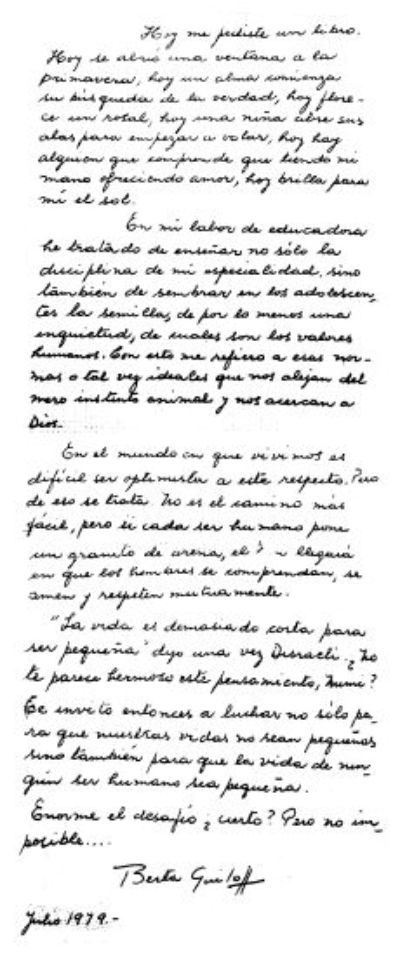 Hoy me pediste un libro.
Hoy se abrió una ventana a la
primavera, hoy un alma comienza
su búsqueda de la verdad, hoy flore-
ce un rosal, hoy una niña abre sus
alas para empezar a volar, hoy hay
alguien que comprende que tiendo mi
mano ofreciendo amor, hoy brilla para
mí el sol.
En mi labor de educadora
he tratado de enseñar no sólo la
disciplina de mi especialidad, sino
también de sembrar en los adolescen-
tes la semilla, de por lo menos una
inquietud, de cuales son los valores
humanos. Con esto me refiero a esas nor-
mas o tal vez ideales que nos alejan del
mero instinto animal y nos acercan a
Dios.
En el mundo en que vivimos es
difícil ser optimista a este respecto. Pero
de eso se trata. No es el camino más
fácil, pero si cada ser humano pone
un granito de arena, el llegará
en que los hombres se comprendan, se
amen y respeten mutuamente.
"La vida es demasiado corta para
ser pequeña" dijo una vez Disraeli. ¿No
te parece hermoso este pensamiento, Mimi?
Te invito entonces a luchar no sólo pa-
ra que nuestras vidas no sean pequeñas
sino también para que la vida de nin-
gún ser humano sea pequeña.
Enorme el desafío ¿cierto? Pero no im-
posible....
Berta Guiloff
Julio 1979.-